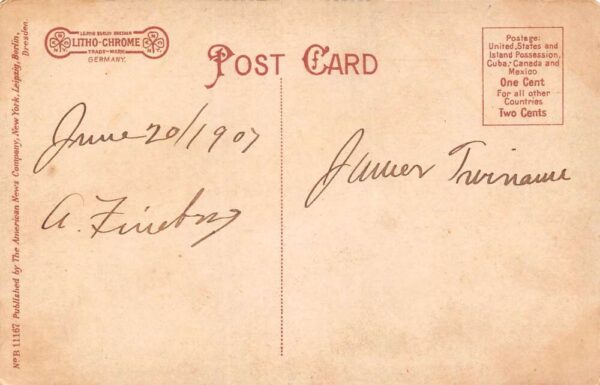 LEIPZIG BERLIN DRESDEN
LITHO-CHROME
TRADE-MARK
GERMANY.
POST CARD
Postage:
United States and
Island Possession,
Cuba, Canada and
Mexico
One Cent
For all other
Countries
Two Cents
June 20/1907
James Twiname
A.
No B 11167 Published by The American News Company, New York, Leipzig, Berlin,
Dresden.